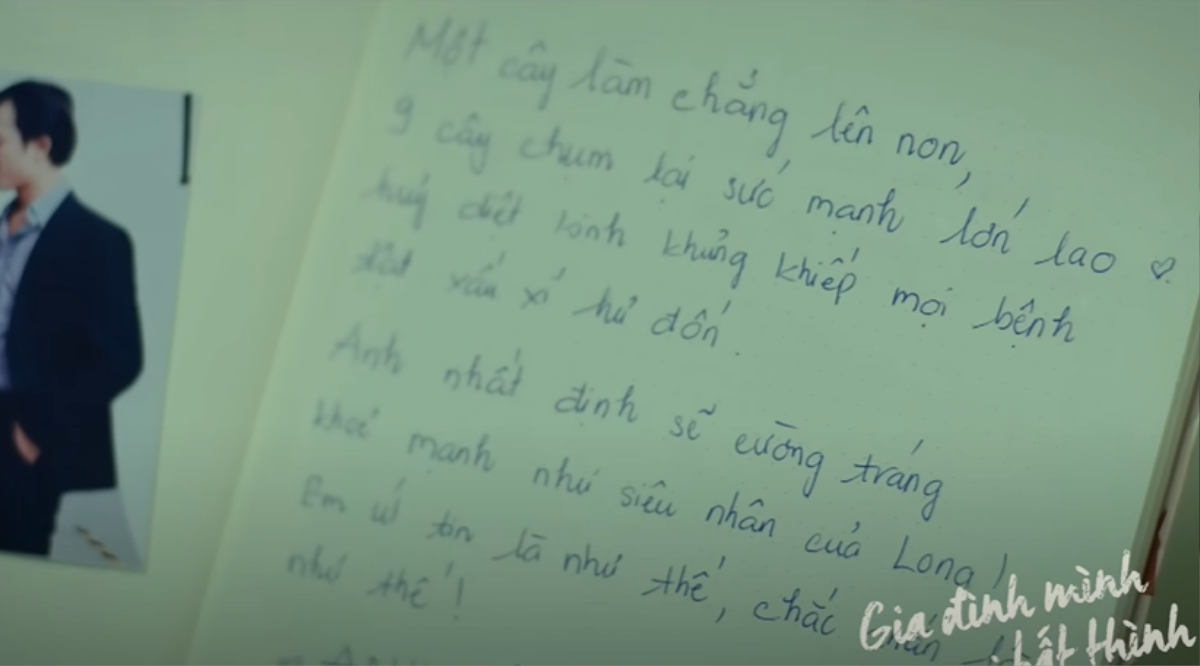 Một cây làm chẳng lên non,
9 cây chụm lại sức mạnh lớn lao ♡.
huỷ diệt kinh khủng khiếp mọi bệnh
tật xấu xí hư đốn.
Anh nhất định sẽ cường tráng
khoẻ mạnh như siêu nhân của Long!
Em tin là như thế, chắc
như thế!
Gia đình mình
bất thình